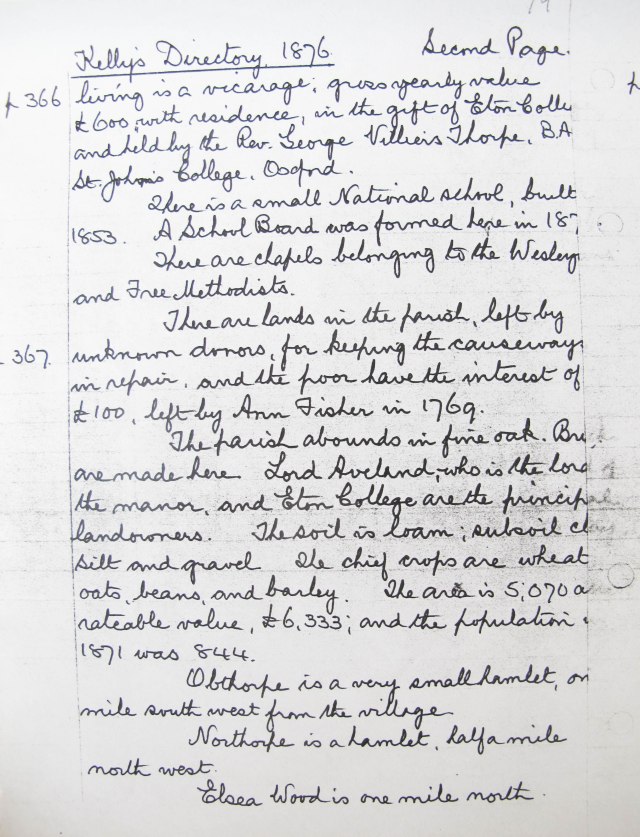 Kelly's Directory. 1876. Second Page.
p 366 living is a vicarage; gross yearly value
£600, with residence, in the gift of Eton Colle
and held by the Rev. George Villiers Thorpe, B.A
St. John's College, Oxford.
There is a small National school, built
1853. A School Board was formed here in 187
There are chapels belonging to the Wesley
and Free Methodists.
There are lands in the parish, left by
367. unknown donors, for keeping the causeways
in repair, and the poor have the interest of
£100, left by Ann Fisher in 1769.
The parish abounds in fine oak. Bri
are made here Lord Aveland, who is the lord
the manor, and Eton College are the princip
landowners. The soil is loam; subsoil cl
silt and gravel The chief crops are wheat
oats, beans, and barley. The area is 5,070 a
rateable value, £6,333; and the population
1871 was 844.
Obthorpe is a very small hamlet, on
mile south west from the village
Northorpe is a hamlet, half a mile
north west.
Elsea Wood is one mile north.